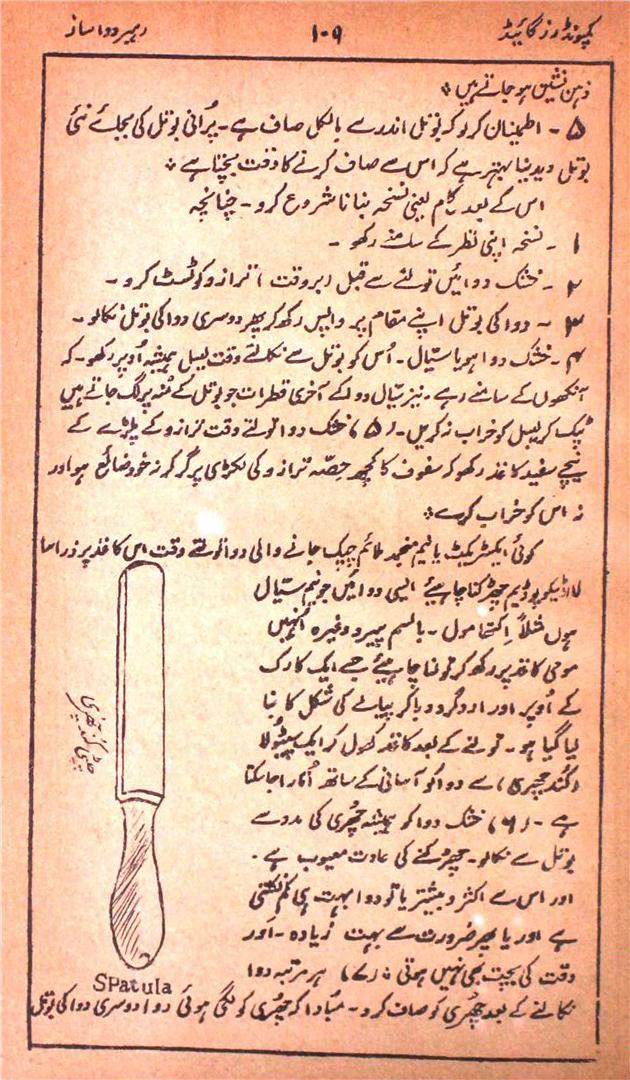 کمپونڈرز گائیڈ ۱۰۹ رہبر دوا ساز
ذہن نشین ہو جاتے ہیں *
۵ - اطمینان کرو کہ بوتل اندر سے بالکل صاف ہے - پُرانی بوتل کی بجائے نئی
بوتل دیدینا بہتر ہے کہ اس سے صاف کرنے کا وقت بچتا ہے *
اس کے بعد کام یعنی نسخہ بنانا شروع کرو - چنانچہ
۱ - نسخہ اپنی نظر کے سامنے رکھو -
۲ - خشک دوائیں تولنے سے قبل (ہر وقت) ترازو کو ٹسٹ کرو -
۳ - دوا کی بوتل اپنے مقام پر واپس رکھ کر پھر دوسری دوا کی بوتل نکالو -
۴ - خشک دوا ہو یا سیّال - اُس کو بوتل سے نکالتے وقت لیبل ہمیشہ اُوپر رکھو - کہ
آنکھوں کے سامنے رہے - نیز سیّال دوا کے آخری قطرات جو بوتل کے مُنہ پر لگ جاتے ہیں
ٹپک کر لیبل کو خراب نہ کریں - (۵) خشک دوا تولتے وقت ترازو کے پلڑے کے
نیچے سفید کاغذ رکھو کہ سفوف کا کچھ حِصّہ ترازو کی لکڑی پر گر کر نہ خود ضائع ہو اور
نہ اس کو خراب کرے *
کوئی ایکٹریکٹ یا نیم منجمد ملائم چپک جانے والی دوا تولتے وقت اس کاغذ پر ذرا سا
لائیکوپوڈیم چھڑکنا چاہیئے ایسی دوائیں جو نیم سیّال
ہوں مثلاً اِکتھامول - بالسم پیرو وغیرہ اُنہیں
مومی کاغذ پر رکھ کر تولنا چاہیئے جسے ایک کارک
کے اُوپر اور اردگرد دبا کر پیالے کی شکل کا بنا
لیا گیا ہو - تولنے کے بعد کاغذ کھول کر ایک سپیٹولا
(کُند چھری) سے دوا کو آسانی کے ساتھ اُتارا جا سکتا
ہے - (۶) خشک دوا کو ہمیشہ چھُری کی مدد سے
بوتل سے نکالو - چھڑکنے کی عادت معیوب ہے -
اور اس سے اکثر و بیشتر یا تو دوا بہت ہی کم نکلتی
ہے اور یا پھر ضرورت سے بہت زیادہ - اَور
وقت کی بچت بھی نہیں ہوتی * (۷) ہر مرتبہ دوا
نکالنے کے بعد چھُری کو صاف کرو - مبادا کہ چھُری کو لگی ہوئی دوا دوسری دوا کی بوتل
چپٹی کُند چھُری
SPatula